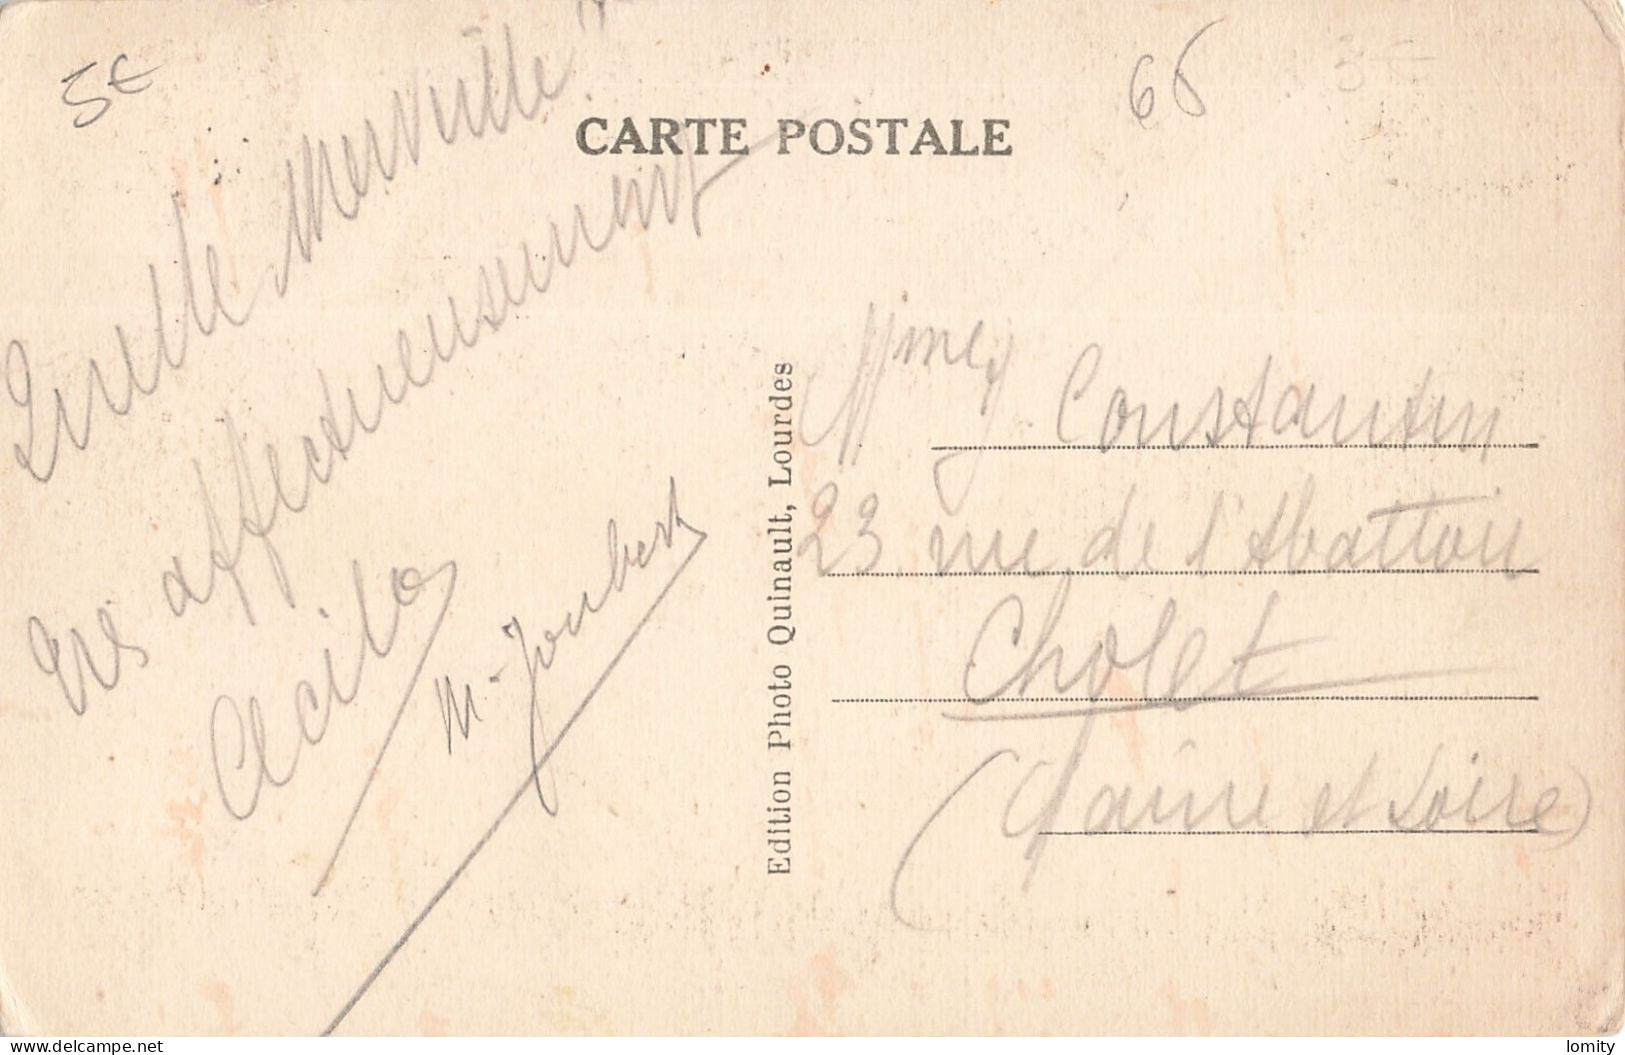 5€
66
3€
CARTE POSTALE
Quelle Merveille !!
Très affectueusement
M. Joubert
Edition Photo Quinault, Lourdes
Mme Constantin
23 rue de l'Abattoir
Cholet
(Maine et Loire)
www.delcampe.net
lomity